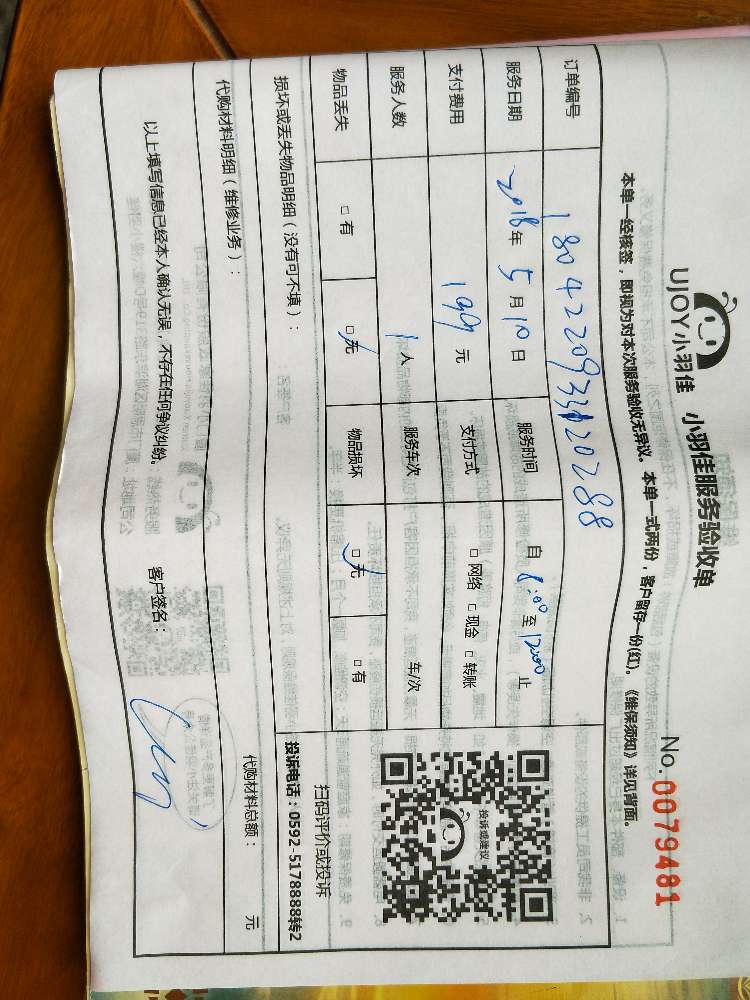 UJOY小羽佳 小羽佳服务验收单
No.0079481
本单一经核签，即视为对本次服务验收无异议。本单一式两份，客户留存一份(红)。《维保须知》详见背面。
订单编号
服务日期 2018年 5月10日 服务时间 自 8:00 至 12:00 止
支付费用 199 元 支付方式 □ 网络 □ 现金 □ 转账
服务人数 1 人 服务车次 车/次
物品丢失 □ 有 □ 无 物品损坏 □ 无 □ 有
投诉或建议
扫码评价或投诉
投诉电话：0592-5178888转2
损坏或丢失物品明细（没有可不填）：
代购材料明细（维修业务）： 代购材料总额： 元
以上填写信息已经本人确认无误，不存在任何争议纠纷。 客户签名：